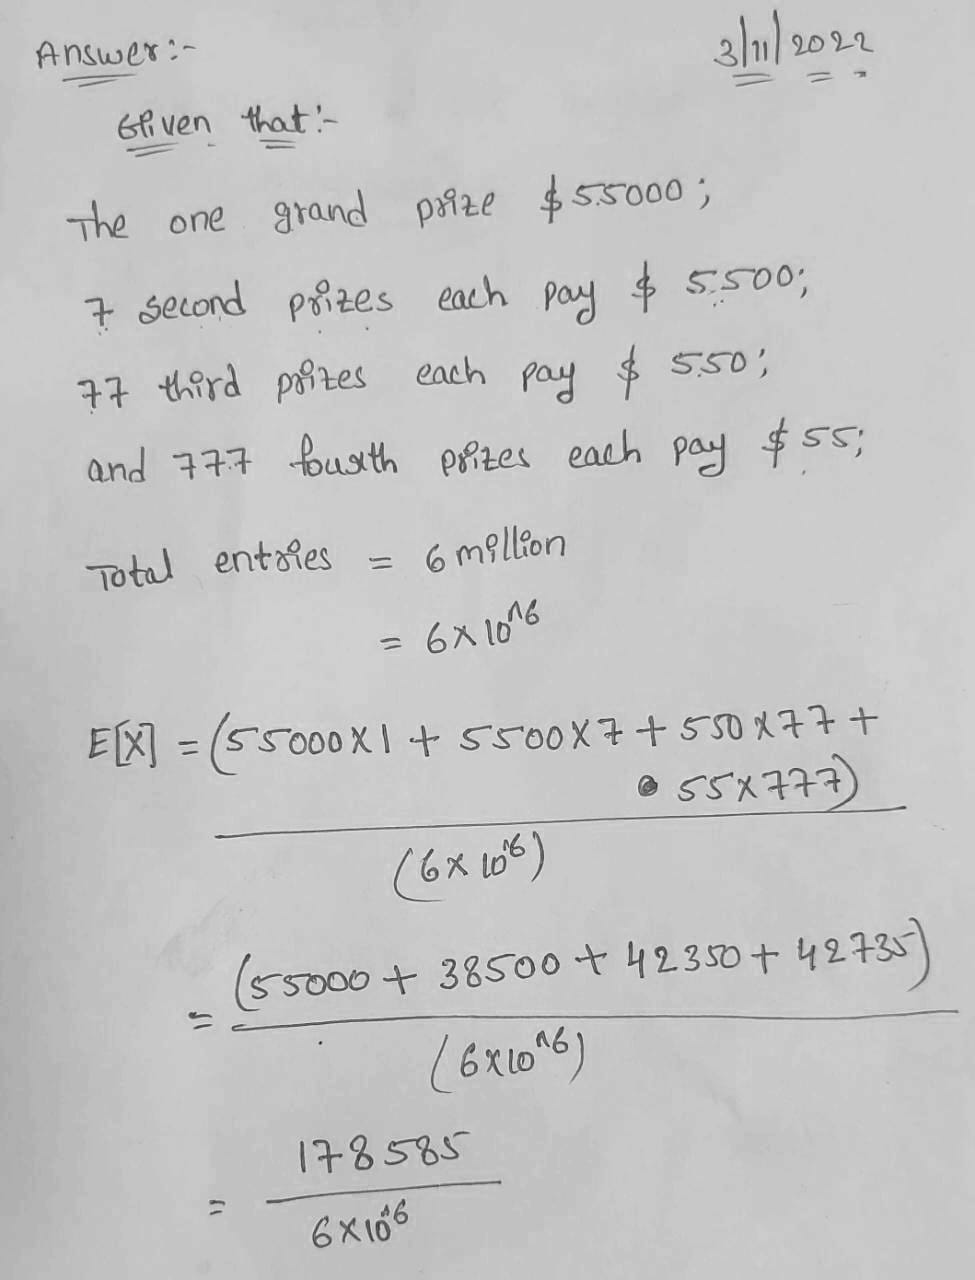 Answer:-
3/11/2022
Given that:-
The one grand prize $55000;
7 second prizes each pay $ 5500;
77 third prizes each pay $ 550;
and 777 fourth prizes each pay $55;
Total entries = 6 million
= 6×10^6
E[X] = (55000×1 + 5500×7 + 550×77 +
55×777)
(6×10^6)
= (55000 + 38500 + 42350 + 42735)
(6×10^6)
178585
= 6×10^6